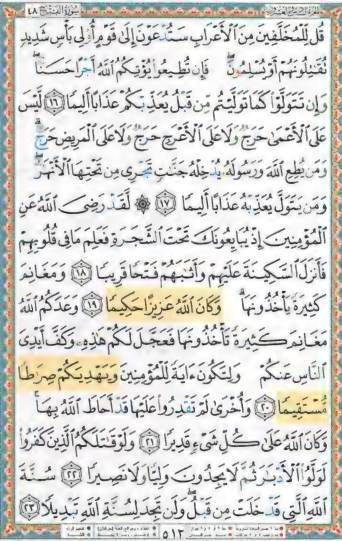 سُورَةُ الفَتْح ٤٨
قُل لِّلْمُخَلَّفِينَ مِنَ ٱلْأَعْرَابِ سَتُدْعَوْنَ إِلَىٰ قَوْمٍ أُو۟لِى بَأْسٍ شَدِيدٍ
تُقَٰتِلُونَهُمْ أَوْ يُسْلِمُونَ ۖ فَإِن تُطِيعُوا۟ يُؤْتِكُمُ ٱللَّهُ أَجْرًا حَسَنًا ۖ
وَإِن تَتَوَلَّوْا۟ كَمَا تَوَلَّيْتُم مِّن قَبْلُ يُعَذِّبْكُمْ عَذَابًا أَلِيمًا ﴿١٦﴾ لَّيْسَ
عَلَى ٱلْأَعْمَىٰ حَرَجٌ وَلَا عَلَى ٱلْأَعْرَجِ حَرَجٌ وَلَا عَلَى ٱلْمَرِيضِ حَرَجٌ ۗ
وَمَن يُطِعِ ٱللَّهَ وَرَسُولَهُۥ يُدْخِلْهُ جَنَّٰتٍ تَجْرِى مِن تَحْتِهَا ٱلْأَنْهَٰرُ ۖ
وَمَن يَتَوَلَّ يُعَذِّبْهُ عَذَابًا أَلِيمًا ﴿١٧﴾ ۞ لَّقَدْ رَضِىَ ٱللَّهُ عَنِ
ٱلْمُؤْمِنِينَ إِذْ يُبَايِعُونَكَ تَحْتَ ٱلشَّجَرَةِ فَعَلِمَ مَا فِى قُلُوبِهِمْ
فَأَنزَلَ ٱلسَّكِينَةَ عَلَيْهِمْ وَأَثَٰبَهُمْ فَتْحًا قَرِيبًا ﴿١٨﴾ وَمَغَانِمَ
كَثِيرَةً يَأْخُذُونَهَا ۗ وَكَانَ ٱللَّهُ عَزِيزًا حَكِيمًا ﴿١٩﴾ وَعَدَكُمُ ٱللَّهُ
مَغَانِمَ كَثِيرَةً تَأْخُذُونَهَا فَعَجَّلَ لَكُمْ هَٰذِهِۦ وَكَفَّ أَيْدِىَ
ٱلنَّاسِ عَنكُمْ وَلِتَكُونَ ءَايَةً لِّلْمُؤْمِنِينَ وَيَهْدِيَكُمْ صِرَٰطًا
مُّسْتَقِيمًا ﴿٢٠﴾ وَأُخْرَىٰ لَمْ تَقْدِرُوا۟ عَلَيْهَا قَدْ أَحَاطَ ٱللَّهُ بِهَا ۚ
وَكَانَ ٱللَّهُ عَلَىٰ كُلِّ شَىْءٍ قَدِيرًا ﴿٢١﴾ وَلَوْ قَٰتَلَكُمُ ٱلَّذِينَ كَفَرُوا۟
لَوَلَّوُا۟ ٱلْأَدْبَٰرَ ثُمَّ لَا يَجِدُونَ وَلِيًّا وَلَا نَصِيرًا ﴿٢٢﴾ سُنَّةَ
ٱللَّهِ ٱلَّتِى قَدْ خَلَتْ مِن قَبْلُ ۖ وَلَن تَجِدَ لِسُنَّةِ ٱللَّهِ تَبْدِيلًا ﴿٢٣﴾
٥١٣